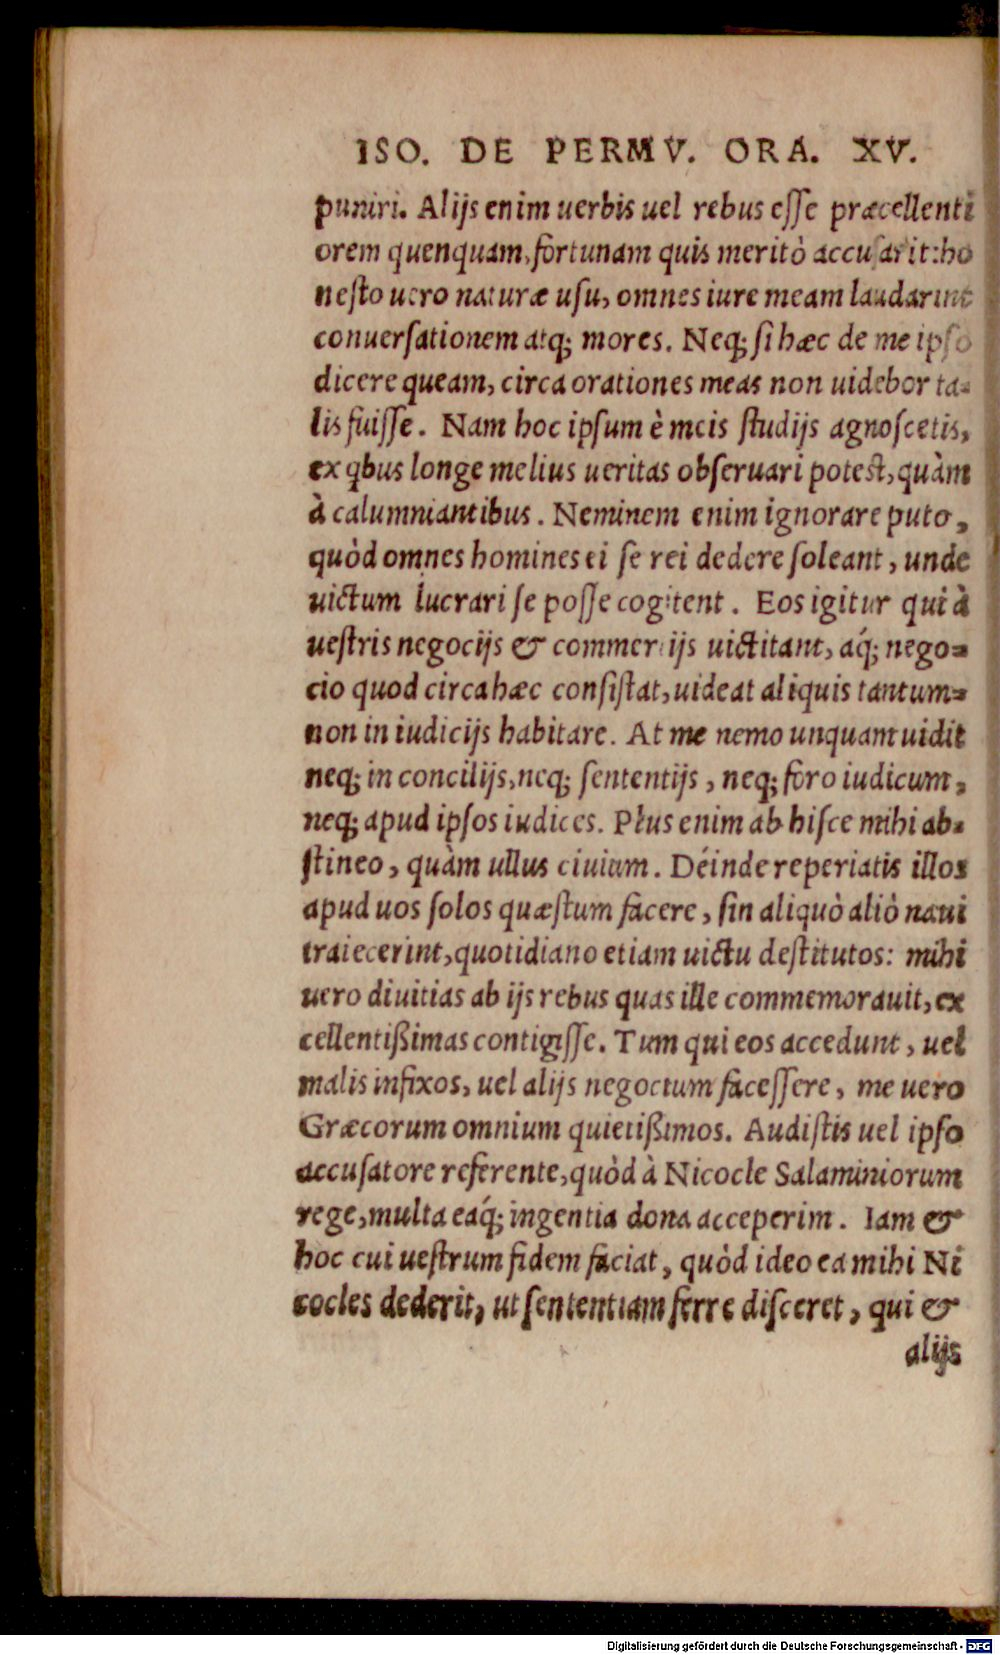 ISO. DE PERMV. ORA. XV.
puniri. Alijs enim uerbis uel rebus eſſe præcellenti
orem quenquam, fortunam quis meritò accuſarit: ho
neſto uero naturæ uſu, omnes iure meam laudarint
conuerſationem atq; mores. Neq; ſi hæc de me ipſo
dicere queam, circa orationes meas non uidebor ta-
lis fuiſſe. Nam hoc ipſum è meis ſtudijs agnoſcetis,
ex qbus longe melius ueritas obſeruari poteſt, quàm
à calumniantibus. Neminem enim ignorare puto,
quòd omnes homines ei ſe rei dedere ſoleant, unde
uictum lucrari ſe poſſe cogitent. Eos igitur qui à
ueſtris negocijs & commercijs uictitant, aq́; nego-
cio quod circa hæc conſiſtat, uideat aliquis tantum-
non in iudicijs habitare. At me nemo unquam uidit
neq; in concilijs, neq; ſententijs, neq; foro iudicum,
neq; apud ipſos iudices. Plus enim ab hiſce mihi ab-
ſtineo, quàm ullus ciuium. Déinde reperiatis illos
apud uos ſolos quæſtum facere, ſin aliquò aliò naui
traiecerint, quotidiano etiam uictu deſtitutos: mihi
uero diuitias ab ijs rebus quas ille commemorauit, ex
cellentißimas contigiſſe. Tum qui eos accedunt, uel
malis infixos, uel alijs negocium faceſſere, me uero
Græcorum omnium quietißimos. Audiſtis uel ipſo
accuſatore referente, quòd à Nicocle Salaminiorum
rege, multa eaq́; ingentia dona acceperim. Iam &
hoc cui ueſtrum fidem faciat, quòd ideo ea mihi Ni
cocles dederit, ut ſententiam ferre diſceret, qui &
alijs
Digitalisierung gefördert durch die Deutsche Forschungsgemeinschaft - DFG